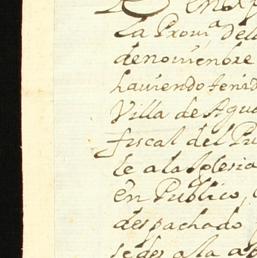 en
la Prou.ª del
denouiembre
hauiendo tenid
Villa de Agu
fiscal del Pu
le a la Iglesia
en Publico,
despachado
sedes a la a